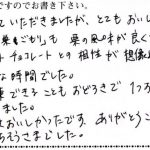 ですのでお書き下さい。
ていただきましたが、とてもおいし
栗ごもり」も 栗の風味が良く
チョコレートとの相性が想像
な時間でした。
できることもおどろきで 1つ
ました。
はおいしかったです ありがとうご
そうさまでした。